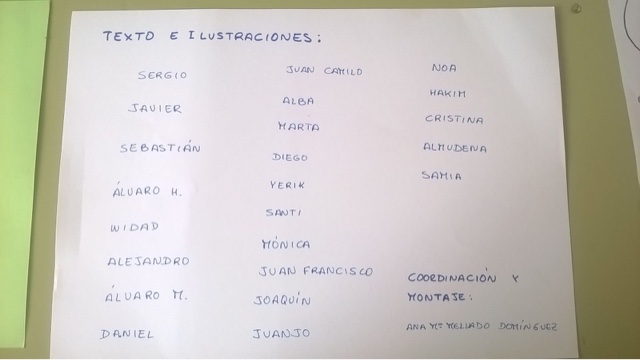 TEXTO E ILUSTRACIONES:
SERGIO
JAVIER
SEBASTIÁN
ÁLVARO H.
WIDAD
ALEJANDRO
ÁLVARO M.
DANIEL
JUAN CAMILO
ALBA
MARTA
DIEGO
YERIK
SANTI
MÓNICA
JUAN FRANCISCO
JOAQUÍN
JUANJO
NOA
HAKIM
CRISTINA
ALMUDENA
SAMIA
COORDINACIÓN Y
MONTAJE:
ANA Mª MELLADO DOMÍNGUEZ